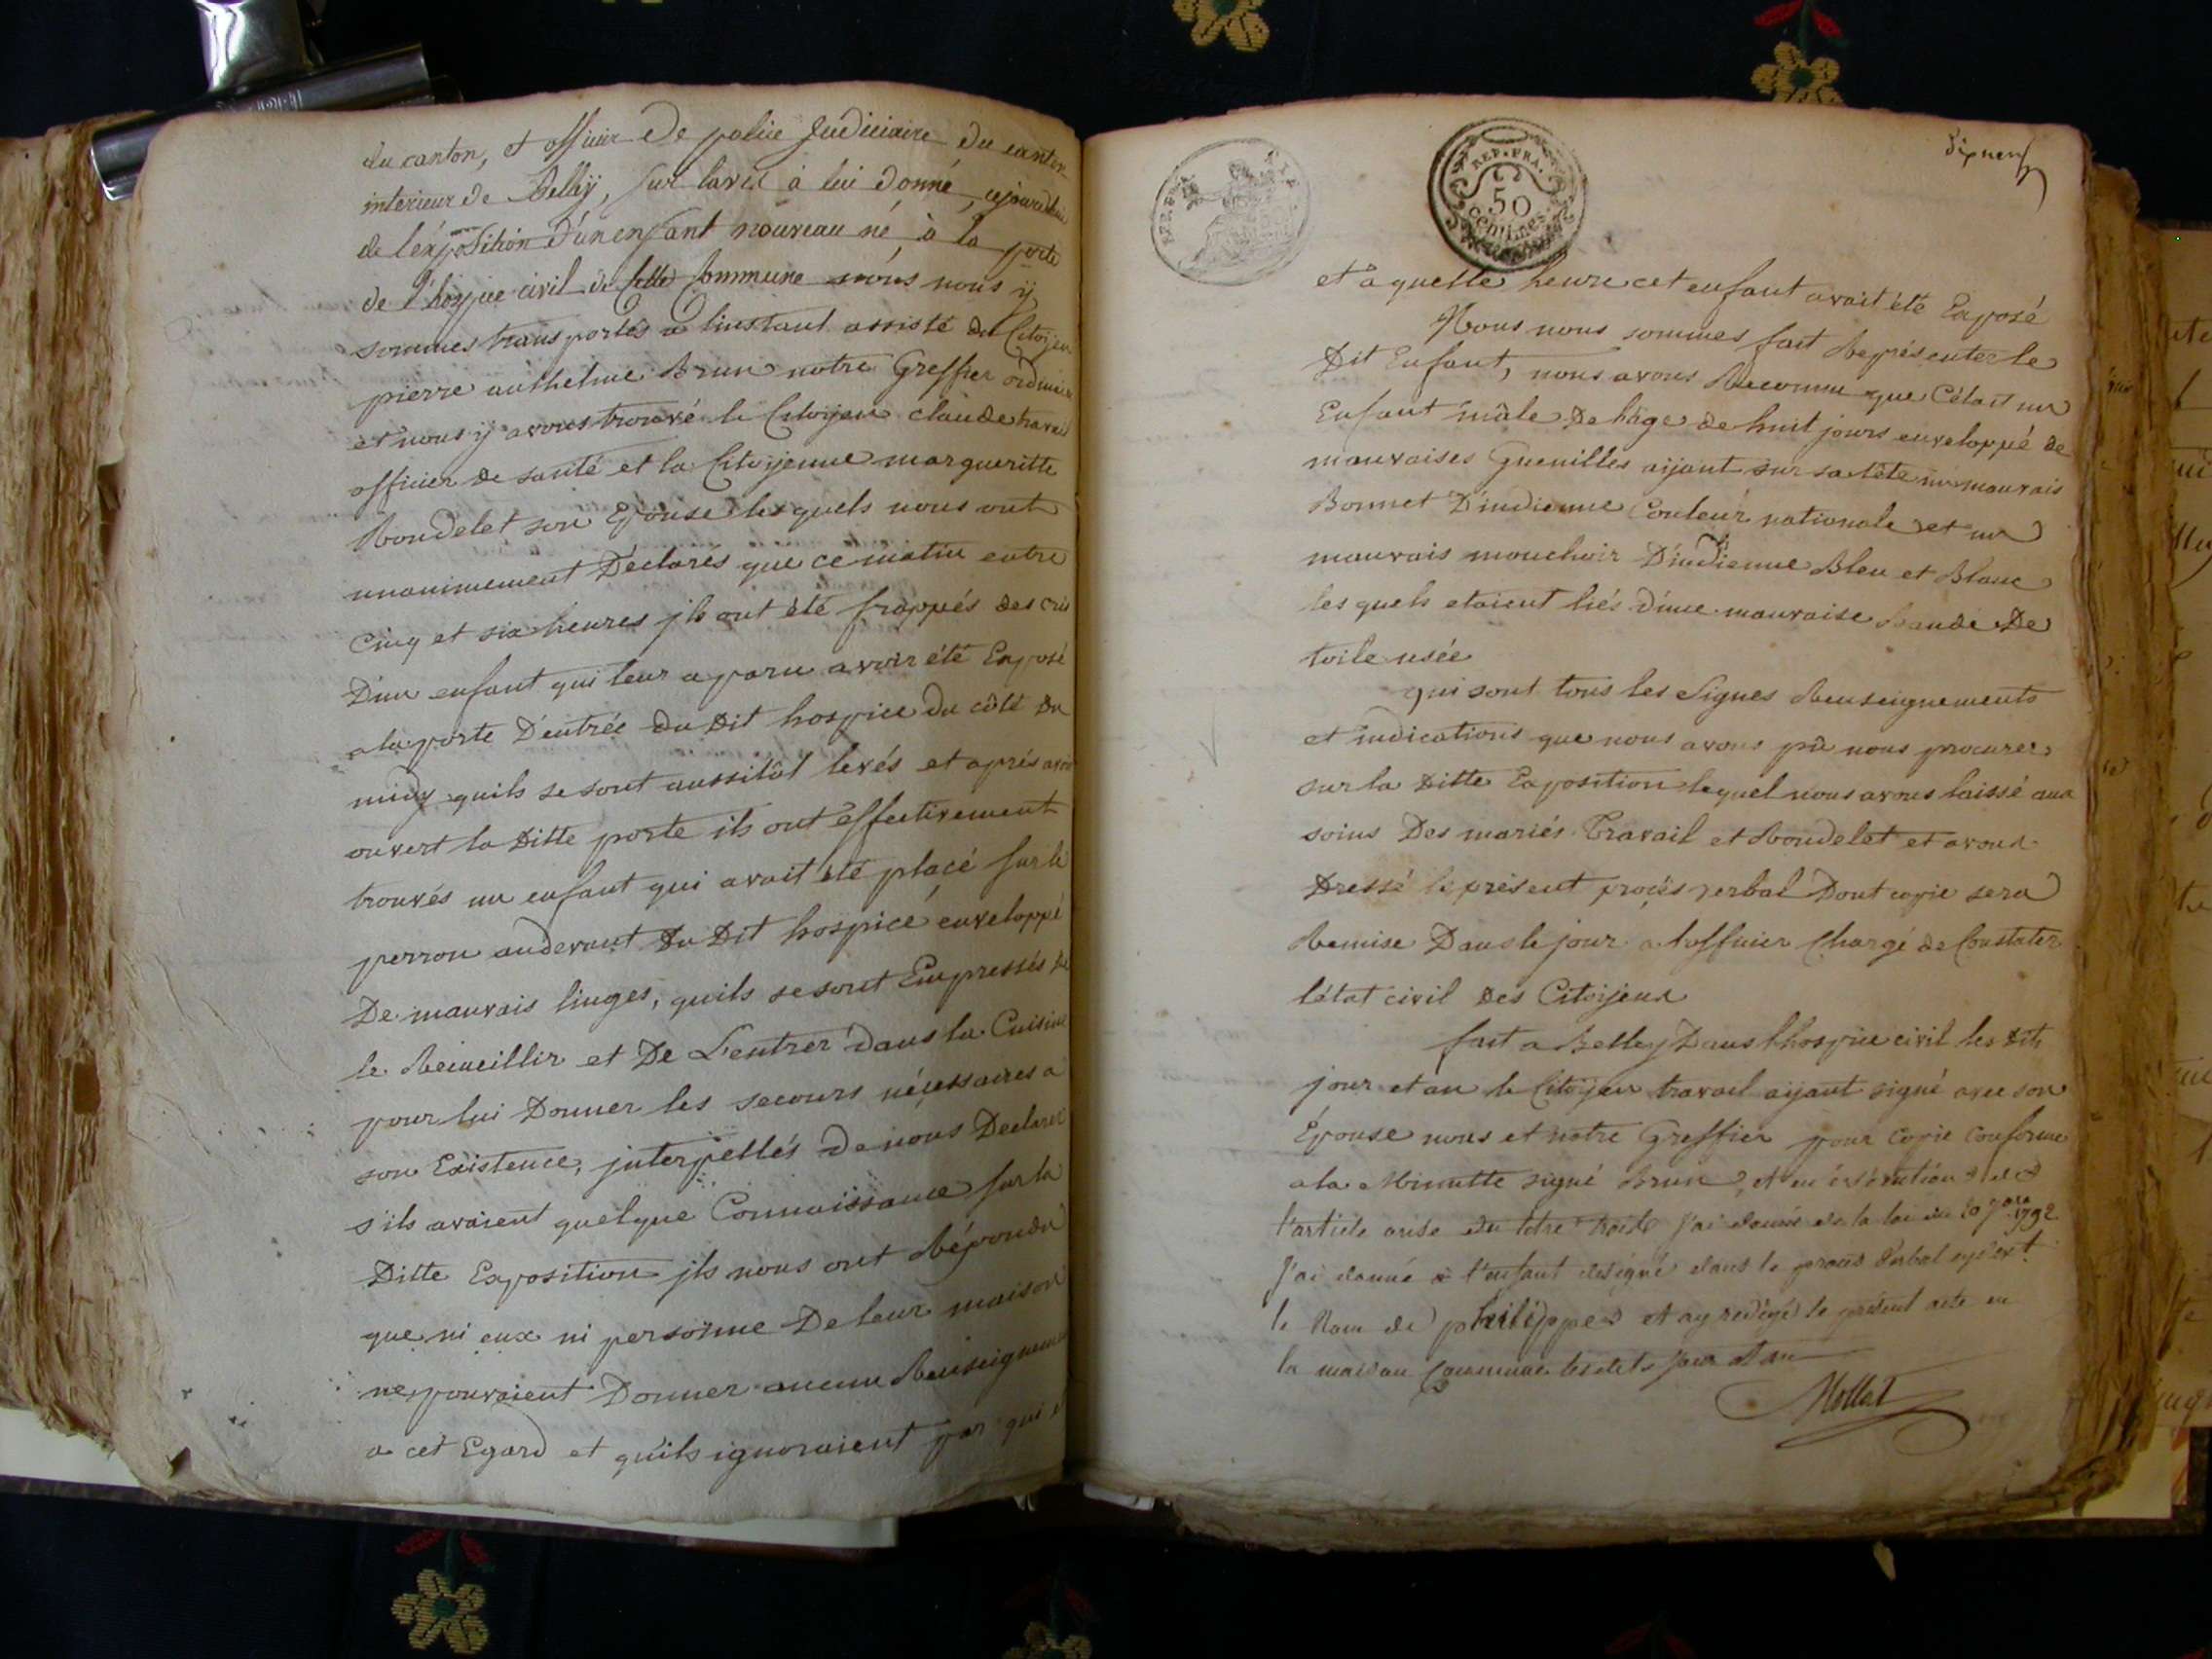 du canton, et officier de police Judiciaire du canton
interieur de Belley, sur lavis à lui donné, cejourdhui
de l'éxposition d'un enfant nouveau né, à la porte
de l'hospice civil de cette Commune nous nous ÿ
sommes transportés a linstant assisté du Citoyen
pierre anthelme Brun notre Greffier ordinaire
et nous ÿ avons trouvé le Citoÿen claude travail
officier de santé et la Citoÿenne margueritte
Rondelet son Epouse lesquels nous ont
unanimement Déclarés que ce matin entre
Cinq et six heures jls ont été frappés des cris
D'un enfant qui leur a paru avoir été Exposé
a la porte D'entrée du Dit hospice du côté du
midy quils se sont aussitôt levés et aprés avoir
ouvert la Ditte porte ils ont effectivement
trouvés un enfant qui avait été placé sur le
perron audevant du Dit hospice enveloppé
De mauvais linges, quils se sont Empressés de
le Recueillir et De L'entrer dans la Cuisine
pour lui Donner les secours nécessaires a
son Existence, jnterpellés de nous Declarer
s'ils avaient quelque Connaissance sur la
Ditte Exposition jls nous ont Répondu
que ni eux ni personne De leur maison
ne pouvaient Donner aucun Renseignement
a cet Egard et quils ignoraient par qui
REP. FRA.
REP. FRA.
50
centimes
dixneuf
et a quelle heure cet enfant avait été Exposé
Nous nous sommes fait Représenter le
Dit Enfant, nous avons Reconnu que C'était un
Enfant mâle De lâge de huit jours enveloppé de
mauvaises Guenilles aÿant sur sa tête un mauvais
Bonnet D'indienne Couleur nationale et un
mauvais mouchoir D'indienne Bleu et Blanc
lesquels etaient liés d'une mauvaise Bande De
toile usée
qui sont tous les Signes Renseignements
et indications que nous avons pû nous procurer
sur la Ditte Exposition lequel nous avons laissé aux
soins Des mariés Travail et Rondelet et avons
Dressé le présent procès verbal Dont copie sera
Remise Dans le jour a lofficier Chargé de Constater
létat civil Des Citoÿens
fait a Belley Dans lhospice civil les Dits
jour et an le Citoÿen travail aÿant signé avec son
Épouse nous et notre Greffier pour copie conforme
a la Minutte signé Brun, et en éxécution de
l'article onse du titre trois J'ai donné de la loi du 20 7bre 1792
J'ai donné à l'enfant designé dans le procès verbal
le Nom de philippe et ay redigé le présent acte en
la maison Commune lesdits jour et an
Mollet